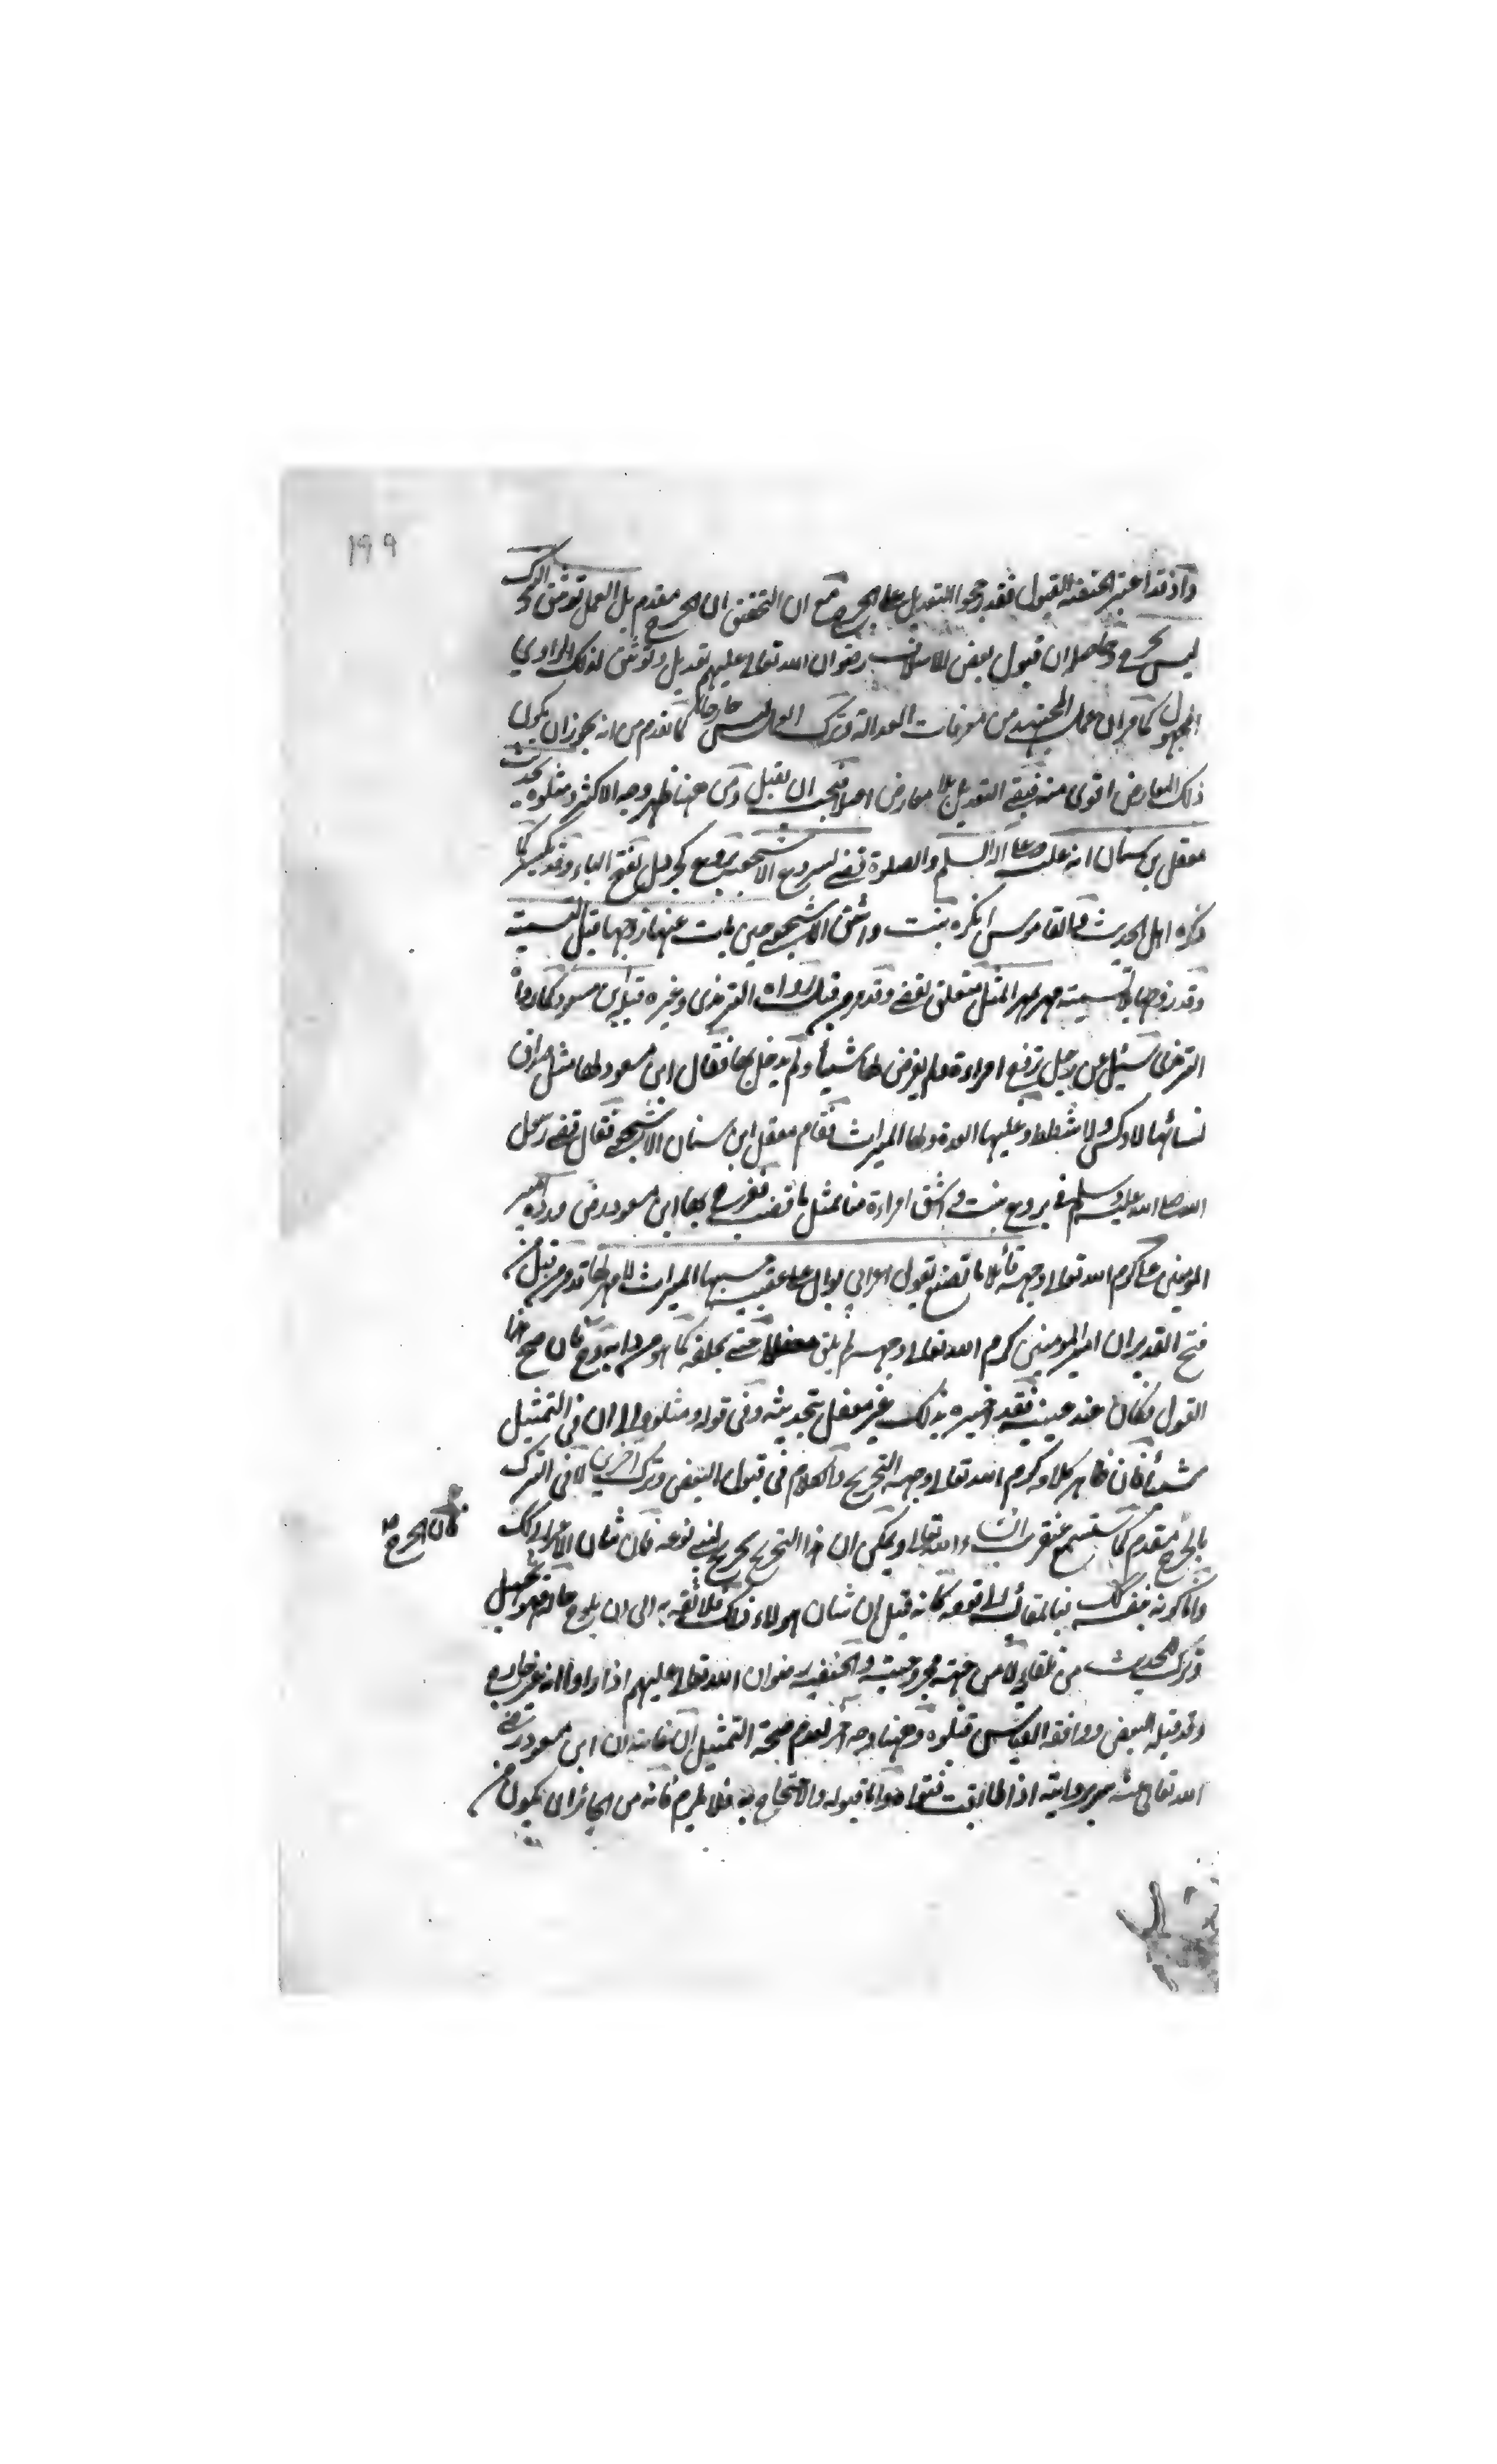 199
واذ قد اعتبر الحنفية القبول فقد رجحوا التعديل على الجرح مع ان التحقيق ان الجرح مقدم بل العمل توثيق والترك
ليس بجرح وحاصله ان قبول بعض الاسلاف رضوان الله تعالى عليهم تعديل وتوثيق لذلك الراوي
المجهول كما مر ان عمل المجتهد من معرفات العدالة وترك العمل ليس جارحا كما تقدم من انه يجوز ان يكون
ذلك المعارض اقوى منه فبقي التعديل بلا معارض اصلا فيجب ان يقبل ومن ههنا ظهر وجه الاكثر ومثلوه بحديث
معقل بن سنان انه عليه وعلى آله السلم والصلوة قضى لبروع الاشجعية بروع كجدول بفتح الباء وقد يكسر كما
ذكره اهل الحديث وفي القاموس انكره بنت واشق الاشجعي حين مات عنها زوجها قبل التسمية
وقد زوجها بلا تسمية مهر بمهر المثل متعلق بقضى وقد مر من قبل رواه الترمذي وغيره قبله ابن مسعود كما رواه
الترمذي سئل عن رجل تزوج امراءة ولم يفرض لها شيئا ولم يدخل بها فقال ابن مسعود لها مثل صداق
نسائها لا وكس ولا شطط وعليها العدة ولها الميراث فقام معقل ابن سنان الاشجعي فقال قضى رسول
الله صلى الله عليه وسلم في بروع بنت واشق امراءة منا بمثل ما قضيت ففرح بها ابن مسعود رض ورده امير
المؤمنين علي كرم الله تعالى وجهه قائلا ما نصنع بقول اعرابي بوال على عقبيه حسبها الميراث لا مهر لها قد مر من قبل من
فتح القدير ان امير المؤمنين كرم الله تعالى وجهه لم يلق معقلا حتى يحلفه كما هو من دابه فان صح هذا
القول فكان عند غيبته فقد اخبره بذلك غير معقل بتحديثه وفي قوله ومثلوه الى ان في التمثيل
شيئا فان ظاهر كلامه كرم الله تعالى وجهه التجريح والكلام في قبول البعض وترك آخرين لا في الترك
بالجرح مقدم كما ستسمع عنقريب انشاء الله تعالى ويمكن ان هذا التجريح تجريح لنوعه فان شان الاعراب ذلك
كان الجرح
واما كونه بنفسه كذلك فبالمقائسة الى قومه كانه قيل ان شان هولاء ذلك فلا ثقة به الى ان يلوح حاله فهو تجهيل
وترك للحديث من تلقائه لا من جهة مجروحيته والحنفية رضوان الله تعالى عليهم اذا راوا انه
وقد قبله البعض ووافقه القياس قبلوه وههنا وجه آخر لعدم صحة التمثيل ان غايته ان ابن مسعود رضي
الله تعالى عنه سر بروايته اذا طابقت فتواه واما قبوله والاحتجاج به فلا يلزم فانه من الجائز ان يكون من